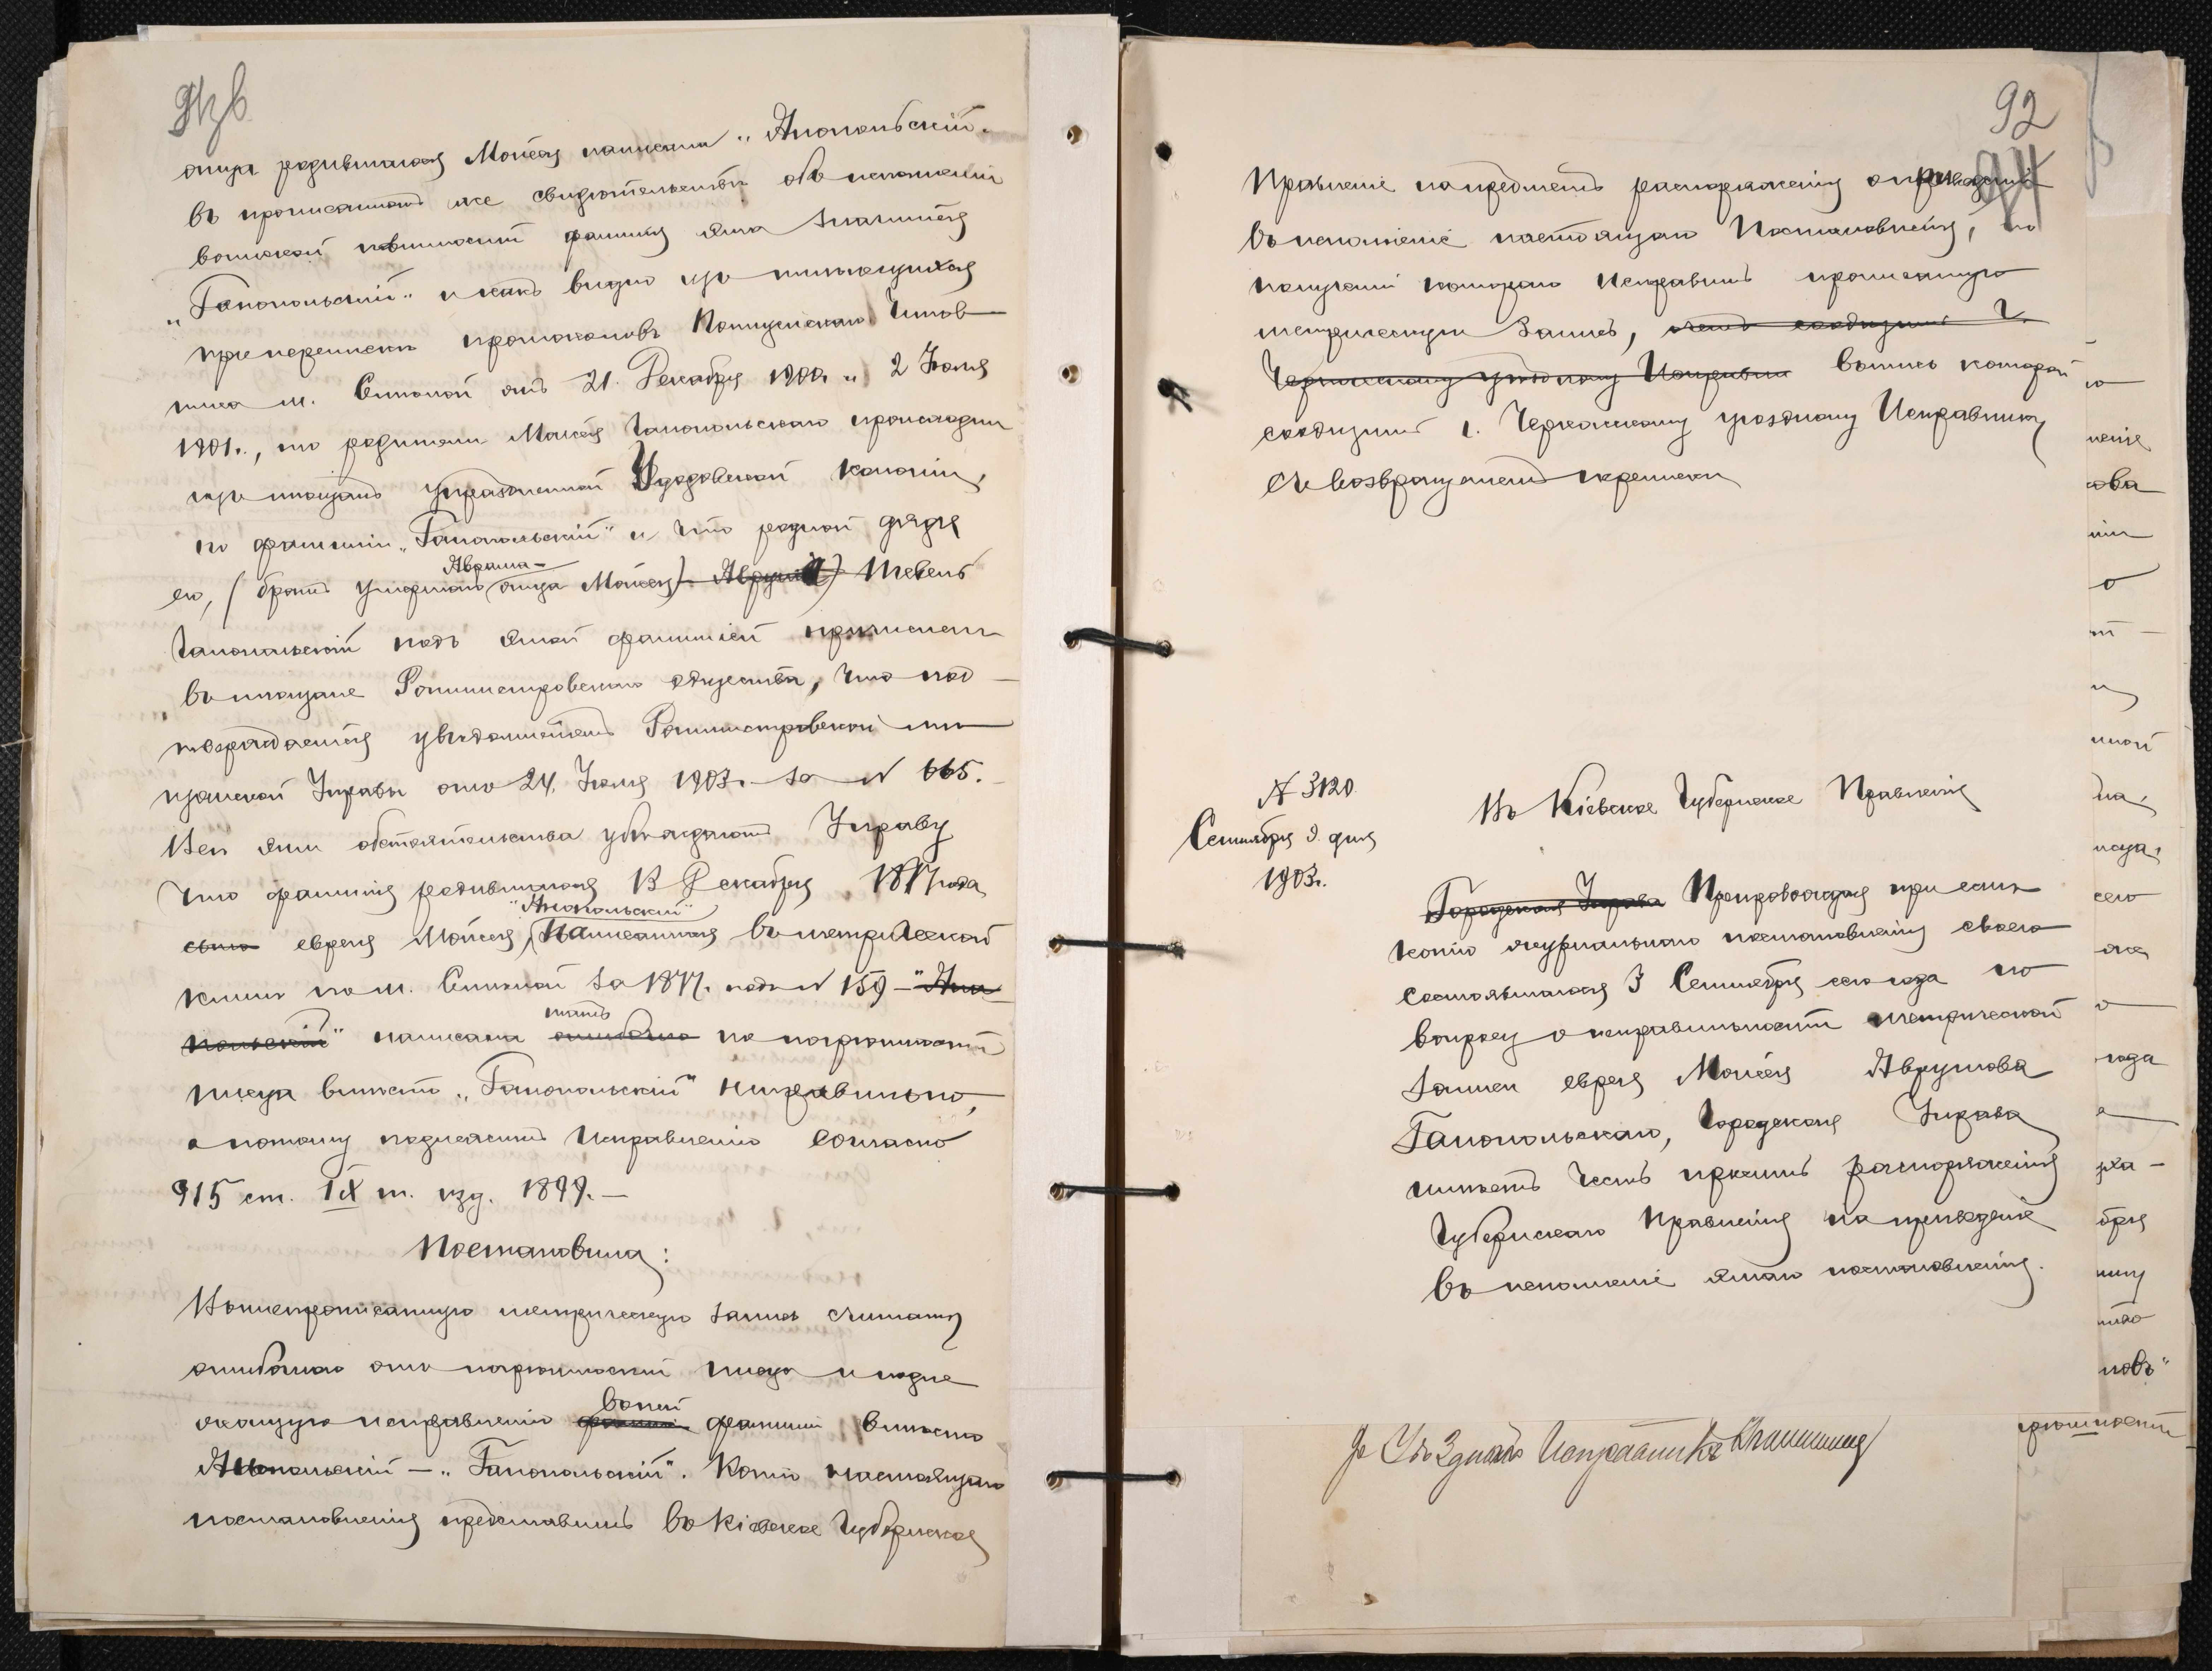 отца родившагося Мойсея написана „Анопольскій".
въ прописанномъ же свидѣтельствѣ объ исполненіи
воинской повинности фамилія эта значится
„Ганопольскій" и какъ видно изъ имѣющихся
при перепискѣ протоколовъ Полицейскаго Чинов-
ника м. Смѣлой отъ 21. Декабря 1900. и 2 Іюля
1901г., что родители Мойсея Ганопольскаго происходили
изъ мѣщанъ упраздненной колоніи,
по фамиліи „Ганопольскій" и что родной дядя
Аврама-
его, (братъ умершаго отца Мойсея)
Ганопольскій подъ этой фамиліей приписанъ
въ мѣщане Ротмистровскаго общества, что под-
тверждается увѣдомленіемъ Ротмистровской мѣ-
щанской Управы отъ 24. Іюля 1903г. за № 665.
Всѣ эти обстоятельства убѣждаютъ Управу
что фамилія родившагося 13 Декабря 1877 года
"Анопольскій"
сына еврея Мойсея, написанная въ метрической
книгѣ по м. Смѣлой за 1877г. подъ № 159 - "Ано-
польскій" написана ошибочно по погрѣшности
писца вмѣсто „Ганопольскій" неправильно,
а потому подлежитъ исправленію согласно
915 ст. IX т. изд. 1899.-
Постановила:
Вышепрописанную метрическую запись считать
ошибочною отъ погрѣшности писца и подле-
въ ней
жащую исправленію фамиліи вмѣсто
Анопольскій - „Ганопольскій". Копію настоящаго
постановленія представить въ Кіевское Губернское
92
Правленіе на предметъ распоряженія о приведеніи
въ исполненіе настоящаго Постановленія, по
полученіи котораго исправить прописанную
метрическую запись, о чемъ сообщить Г.
Черкасскому уѣздному Исправнику выпись которой
сообщить г. Черкасскому уѣздному Исправнику
съ возвращеніемъ переписки
№ 3120
Сентября 9 дня
1903г.
Въ Кіевское Губернское Правленіе
Городская Управа Препровождая при семъ
копію журнальнаго постановленія своего
состоявшагося 3 Сентября сего года по
вопросу о неправильности метрической
записи еврея Мойсея Аврумова
Ганопольскаго, Городская Управа
имѣетъ честь просить распоряженія
Губернскаго Правленія на приведеніе
въ исполненіе этого постановленія.
Уѣзднаго Исправника